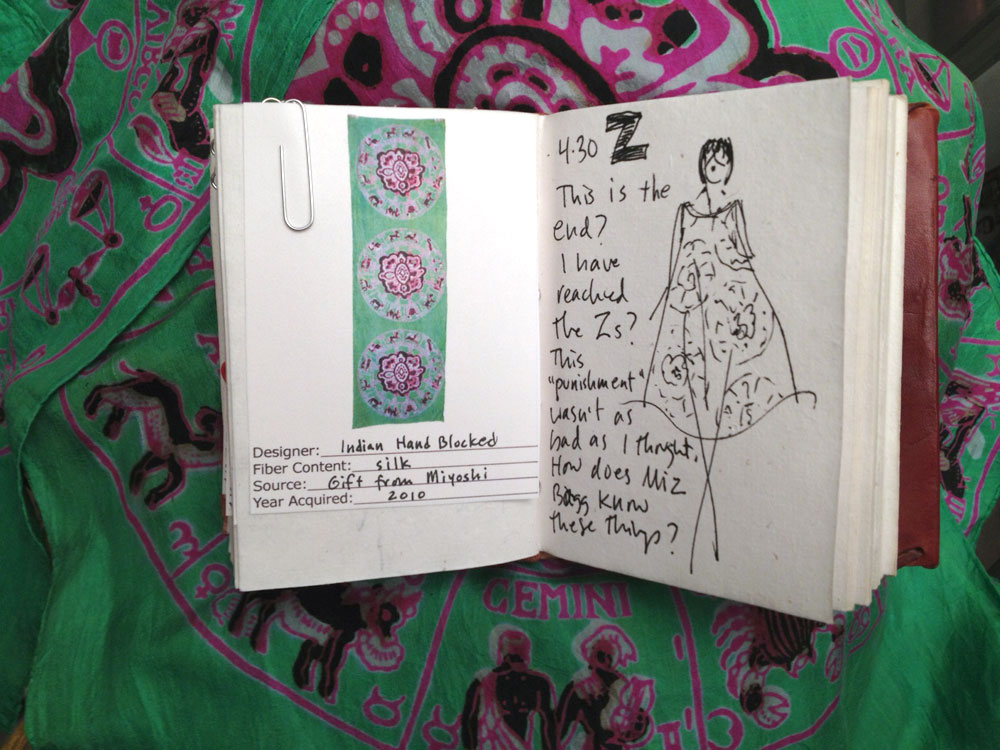 Designer: Indian Hand Blocked
Fiber Content: silk
Source: Gift from Miyoshi
Year Acquired: 2010
4.30 Z
This is the
end?
I have
reached
the Zs?
This
"punishment"
wasn't as
bad as I thought.
How does Miz
Bagg know
these things?
GEMINI